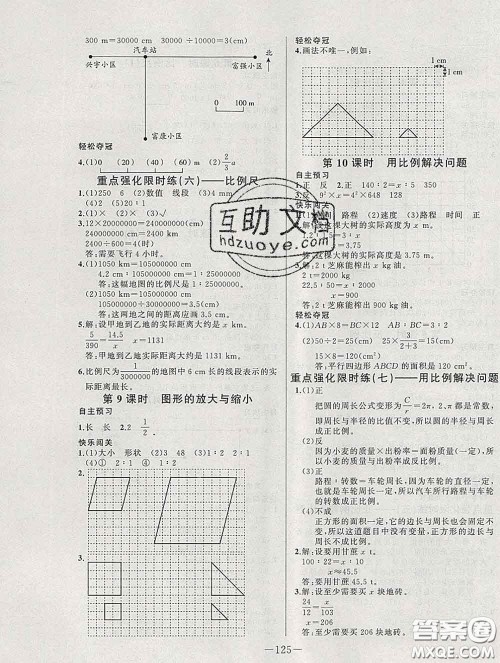 300 m=30000 cm  30000÷10000=3(cm)
汽车站
北
兴宇小区
富强小区
0  100 m
富康小区
轻松夺冠
4.(1)0 (20) (40) (60) (2) 2/3 a
重点强化限时练(六)——比例尺
1.(1)250 6 (2)数值 线段 (3)4 mm
(4)2 (5)20∶1
3.12×20000000=240000000(cm)
240000000cm=2400 km
2400÷600=4(时)
答:需要飞行4小时。
4.(1)1050 km=105000000 cm
4.2 cm∶105000000 cm=1∶25000000
答:这幅地图的比例尺是1∶25000000。
(2)1050 km=105000000 cm
答:两地之间的距离应画3.5 cm。
5.解:设甲地到乙地的实际距离大约是x km。
5/390=14.5/x
x=1131
答:甲地到乙地的实际距离大约是1131 km。
6.比例尺为1/30000000的地图中6 cm长的线段表示的实际距离最长。
第9课时 图形的放大与缩小
自主预习
1.长 长 2.2 1/2
快乐闯关
1.(1)大小 形状 (2)3 48 (3)1∶2 2∶1
(4)④ 2∶1 ① 1∶2
2.
3.
轻松夺冠
4.画法不唯一,例如:
1 cm
1 cm
第10课时 用比例解决问题
自主预习
1.正 反 2.正 140∶2=x∶5 350
3.反 9²×x=6²×648 128
快乐闯关
路程 (2)速度 (3)路程 时间 正
答:这棵大树的实际高度是3.75 m。
3.解:设2 t芝麻能榨出x kg油。
x=900
答:2 t芝麻能榨出900 kg油。
轻松夺冠
4.(1)AB×8=BC×12 AB∶BC=3∶2
(2)25×3/(3+2)=15(cm)
15×8=120(cm²)
答:平行四边形ABCD的面积是120 cm²。
重点强化限时练(七)——用比例解决问题
1.(1)正
把圆的周长公式变形为C/r=2π,2、π都是常数,所以圆的周长与半径成正比例。
(2)反
因为小麦的质量×出粉率=面粉的质量(一定),所以小麦的质量与出粉率成反比例。
(3)正
路程∶转数=车轮周长,因为车轮的直径一定,也就是车轮周长一定,即路程与转数的比值一定,所以汽车所行路程与车轮转数成正比例。
(4)不成
正方形的面积与边长的比值也会固定不变,所以这道题目中没有变量,正方形的面积与边长不成比例。
2.解:设要用甘蔗x t。
100∶22=x∶10
x≈45.5
答:要用甘蔗45.5 t。
3.解:设至少需要买x块地砖。
24/12=x/103
x=206
答:至少需要买206块地砖。
互助文档
hdzuoye.com
答案圈
MXQE.COM
—125—